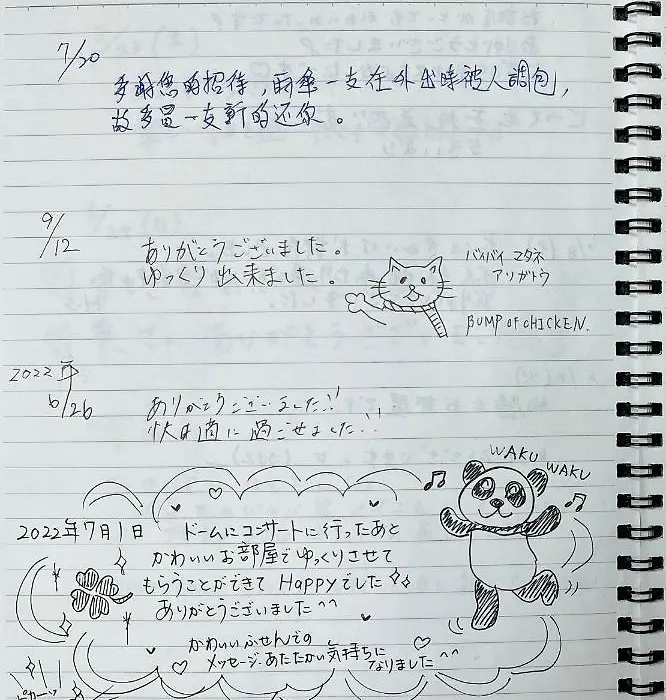 7/20
多謝您的招待，雨傘一支在外出時被人調包，
故多買一支新的还你。
9/12
ありがとうございました。
ゆっくり出来ました。
バイバイ マタネ
アリガトウ
BUMP OF CHICKEN.
2022年
6/26
ありがとうございました!!
快適に過ごせました!!
WAKU WAKU
2022年7月1日 ドームにコンサートに行ったあと
かわいいお部屋でゆっくりさせて
もらうことができて Happyでした
ありがとうございました^^
かわいいふせんでの
メッセージ、あたたかい気持ちに
なりました^^